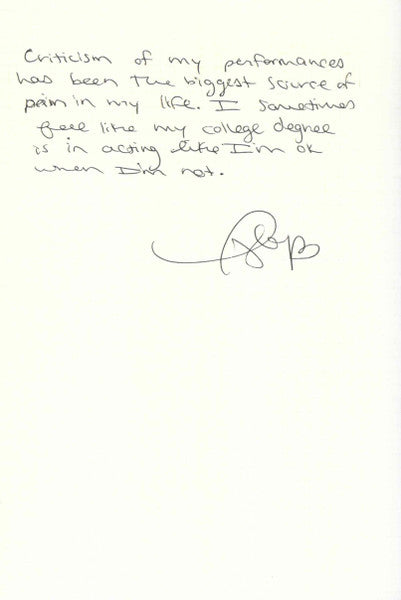 Criticism of my performances
has been the biggest source of
pain in my life. I sometimes
feel like my college degree
is in acting like I'm ok
when I'm not.